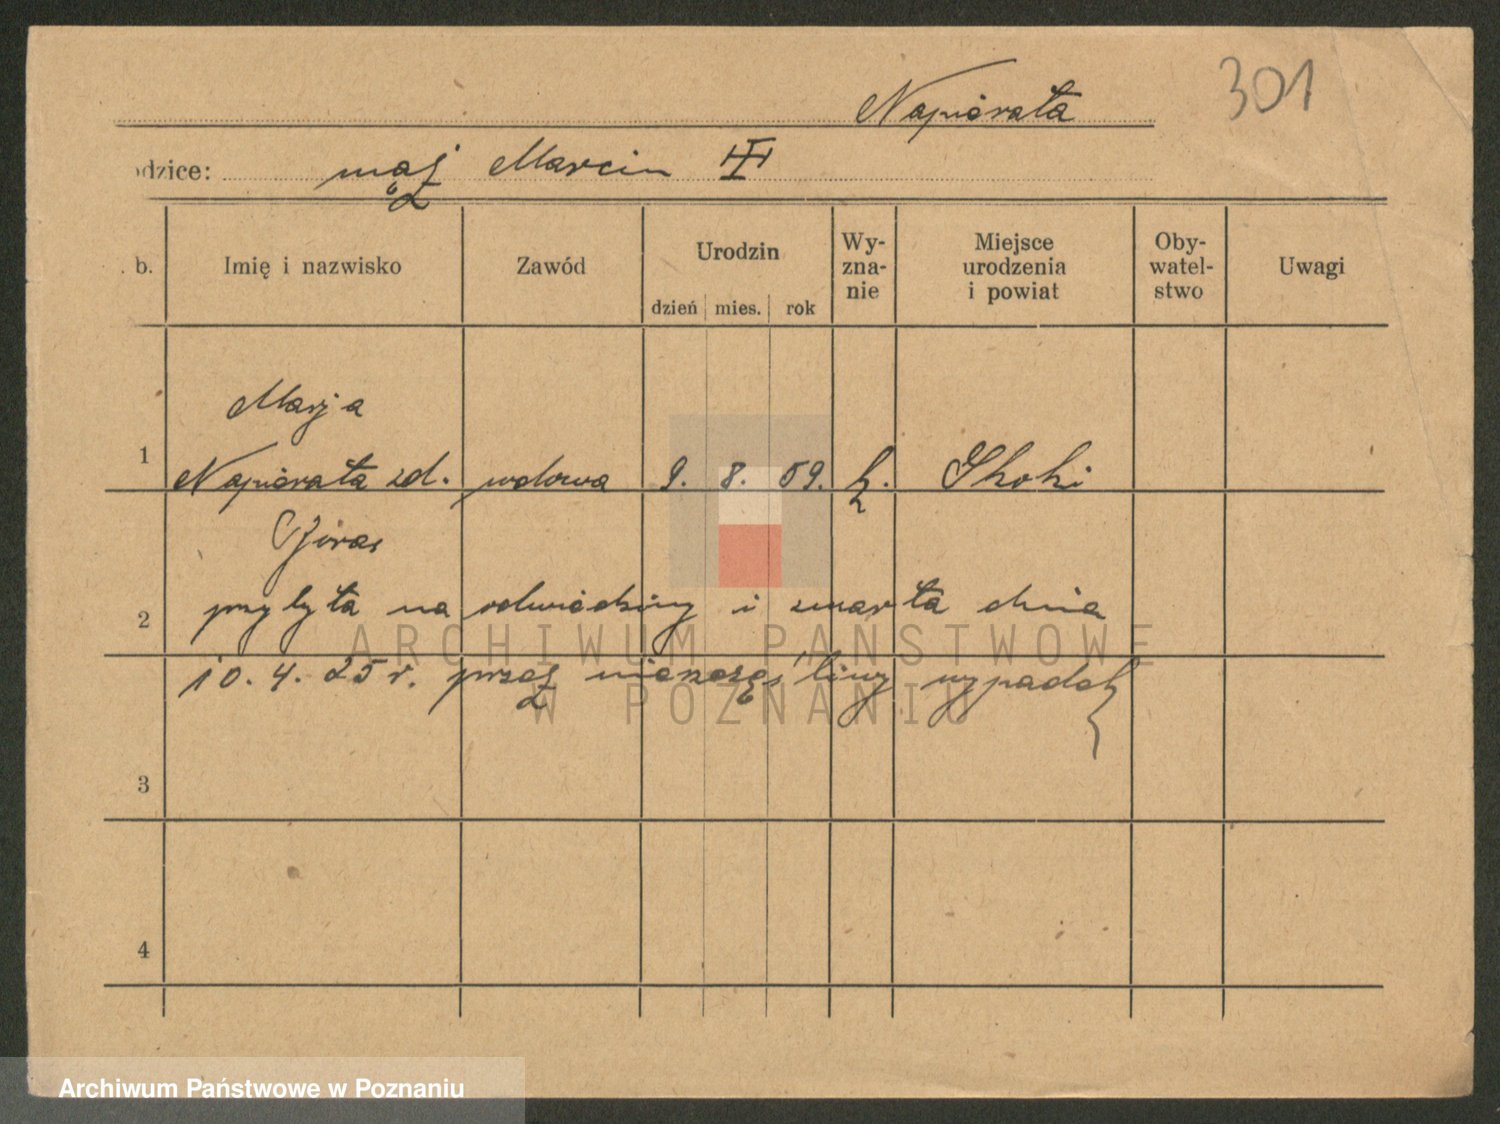 301
Napierała
odzice: mąż Marcin
b. Imię i nazwisko Zawód Urodzin dzień mies. rok Wy-zna-nie Miejsce urodzenia i powiat Oby-watel-stwo Uwagi
Marja
1 Napierała zd. wdowa 9. 8. 59. k. Skoki
2 przybyła na odwiedziny i zmarła dnia
10. 4. 25 r. przez nieszczęśliwy wypadek
3
4
ARCHIWUM PAŃSTWOWE
W POZNANIU
Archiwum Państwowe w Poznaniu